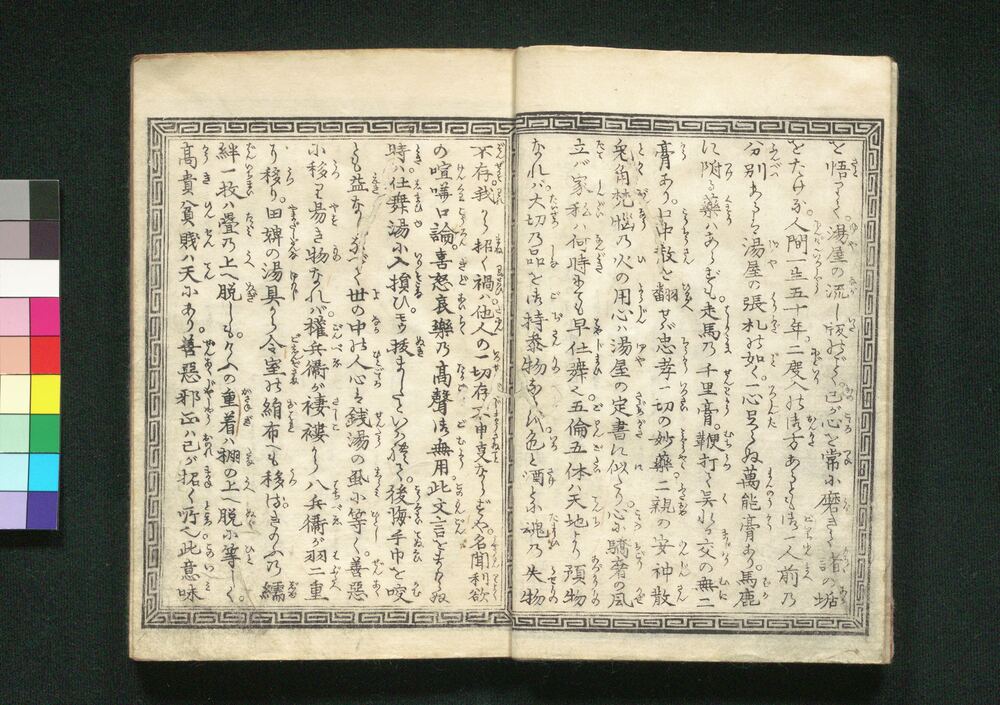 と悟りて。湯屋の流し板のごとく。己が心を常に磨きて。諸の垢
をたけな。人間一生五十年。二度入の御方あるとも御一人前の
分別あるを。湯屋の張札の如く。一心足らぬ萬能膏あり。馬鹿
に附る薬はあらざれども。走馬の千里膏。鞭打て呉れる交の無二
膏あり。口中散を翻せば忠孝一切の妙薬。二親の安神散
兎角梵悩の火の用心は湯屋の定書に似たり。心に驕奢の風
立ば家私は何時にても早仕舞と。五倫五体は天地より預物
なれば。大切の品を御持参物なくば。色と酒とに魂の失物
不存。我から招く禍は他人の一切存不申支ならずや。名聞利欲
の喧嘩口論。喜怒哀樂の高聲御無用。此文言をまもらぬ
時は仕舞湯に入損ひ。モウ抜ましたといふ様で。後悔手巾を咬
とも益なかるべく。世の中の人心は。銭湯の虱に等しく。善悪
小移り易き物なれば。權兵衛が褄褸から八兵衛が羽二重
に移り。田婢の湯具から令室の絹布にも移る。きのふの襦
絆一枚は畳の上へ脱しも。けふの重着は棚の上へ脱に等しく。
高貴貧賎は天にあり。善悪邪正は己が招く所也。此意味